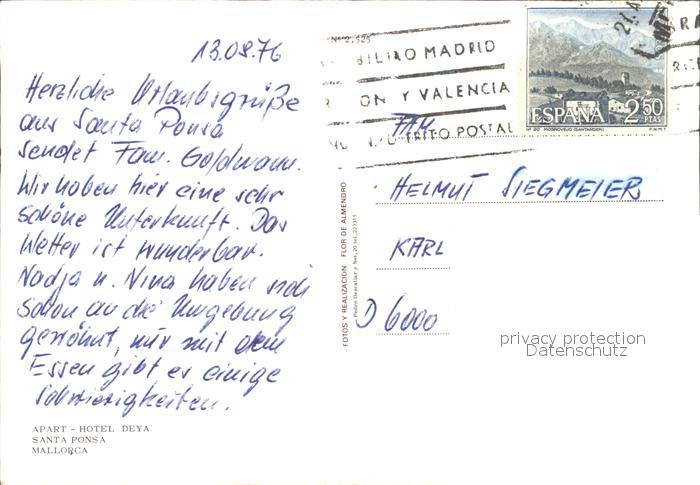 13.08.76
Herzliche Urlaubsgrüße
aus Santa Ponsa
sendet Fam. Goldmann.
Wir haben hier eine sehr
schöne Unterkunft. Das
Wetter ist wunderbar.
Nadja u. Nina haben sich
schon an die Umgebung
gewöhnt, nur mit dem
Essen gibt es einige
Schwierigkeiten.
APART - HOTEL DEYA
SANTA PONSA
MALLORCA
FOTOS Y REALIZACION FLOR DE ALMENDRO
BILBAO MADRID
ON Y VALENCIA
DISTRITO POSTAL
ESPAÑA 2'50
PTAS
Nº 20 MOGROVEJO (SANTANDER) F.N.M.T.
FAM.
HELMUT SIEGMEIER
KARL
D 6000
privacy protection
Datenschutz